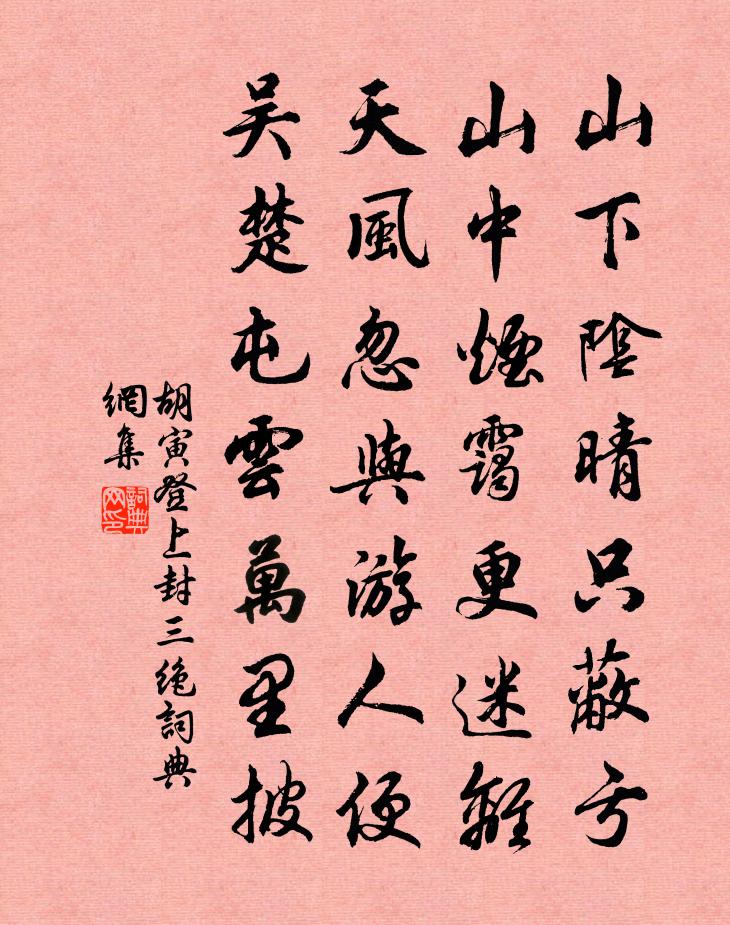 山下陰晴只蔽亏
山中煙靄更迷離
天風忽與游人便
吴楚屯雲萬里披
胡寅登上封三绝詞典
網集
詞典網印